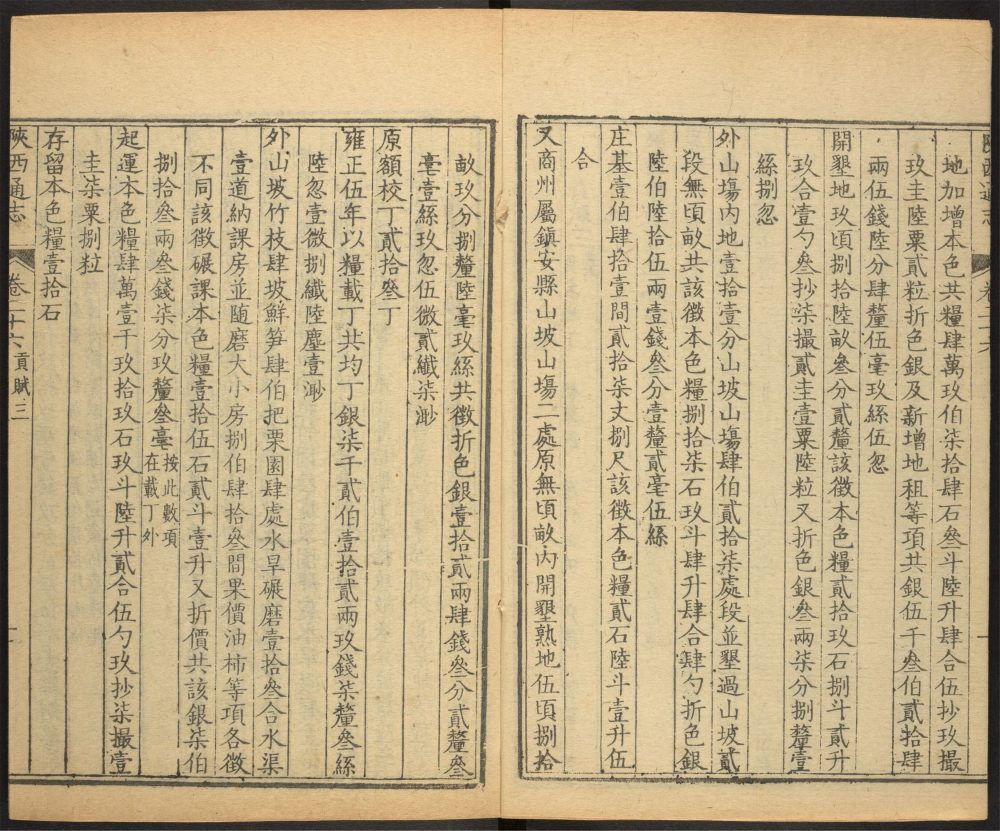 陝西通志 卷二十六
地加增本色共糧肆萬玖伯柒拾肆石叄斗陸升肆合伍抄玖撮
玖圭陸粟貳粒折色銀及新增地租等項共銀伍千叄伯貳拾肆
兩伍錢陸分肆釐伍毫玖絲伍忽
開墾地玖頃捌拾陸畝叄分貳釐該徵本色糧貳拾玖石捌斗貳升
玖合壹勺叄抄柒撮貳圭壹粟陸粒又折色銀叄兩柒分捌釐壹
絲捌忽
外山塲内地壹拾壹分山坡山塲肆伯貳拾柒處段並墾過山坡貳
段無頃畝共該徵本色糧捌拾柒石玖斗肆升肆合肆勺折色銀
陸伯陸拾伍兩壹錢叄分壹釐貳毫伍絲
庄基壹伯肆拾壹間貳拾柒丈捌尺該徵本色糧貳石陸斗壹升伍
合
又商州屬鎮安縣山坡山塲二處原無頃畝内開墾熟地伍頃捌拾
畝玖分捌釐陸毫玖絲共徵折色銀壹拾貳兩肆錢叄分貳釐叄
毫壹絲玖忽伍微貳纖柒渺
原額校丁貳拾叄丁
雍正伍年以糧載丁共均丁銀柒千貳伯壹拾貳兩玖錢柒釐叄絲
陸忽壹微捌纖陸塵壹渺
外山坡竹枝肆坡鮮笋肆伯把栗園肆處水旱碾磨壹拾叄合水渠
壹道納課房並随磨大小房捌伯肆拾叄間果價油柿等項各徵
不同該徵碾課本色糧壹拾伍石貳斗壹升又折價共該銀柒伯
捌拾叄兩叄錢柒分玖釐叄毫按此數項
在載丁外
起運本色糧肆萬壹千玖拾玖石玖斗陸升貳合伍勺玖抄柒撮壹
圭柒粟捌粒
存留本色糧壹拾石
陝西通志 卷二十六 貢賦三